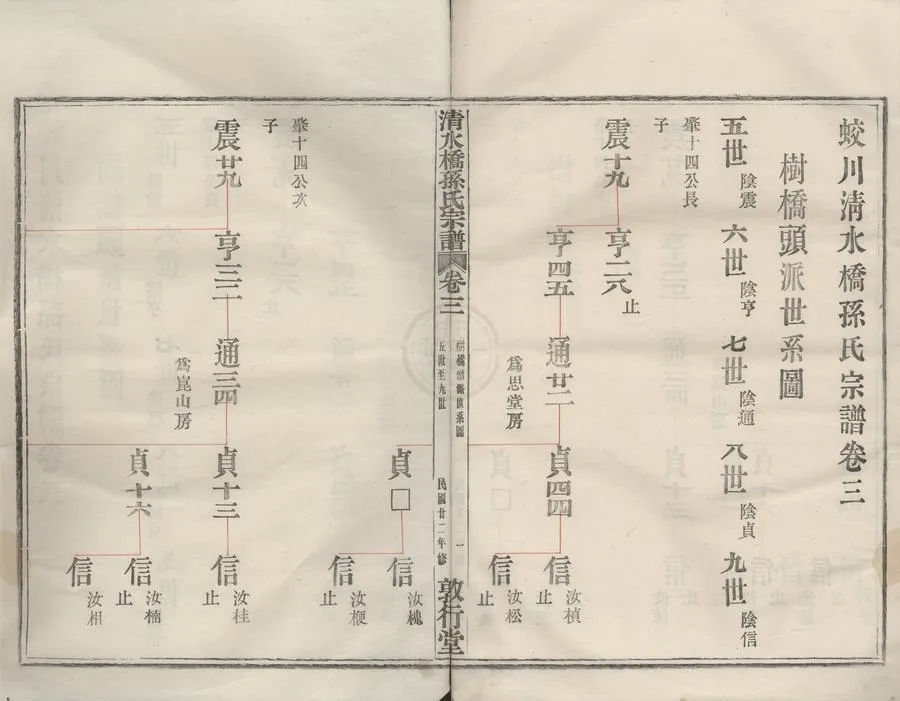 蛟川清水橋孫氏宗譜卷三
樹橋頭派世系圖
五世 陰震 六世 陰亨 七世 陰通 八世 陰貞 九世 陰信
肇十四公長
子
震十九
亨二六 止
亨四五
通廿二
爲思堂房
貞四四
信 汝楨 止
信 汝松 止
清水橋孫氏宗譜 卷三
樹橋頭派世系圖
五世至九世
一
民國廿二年修
敦行堂
貞□
信 汝槐
信 汝梗 止
肇十四公次
子
震廿九
亨三二
通三四
爲崑山房
貞十三
信 汝桂 止
貞十六
信 汝楠 止
信 汝相